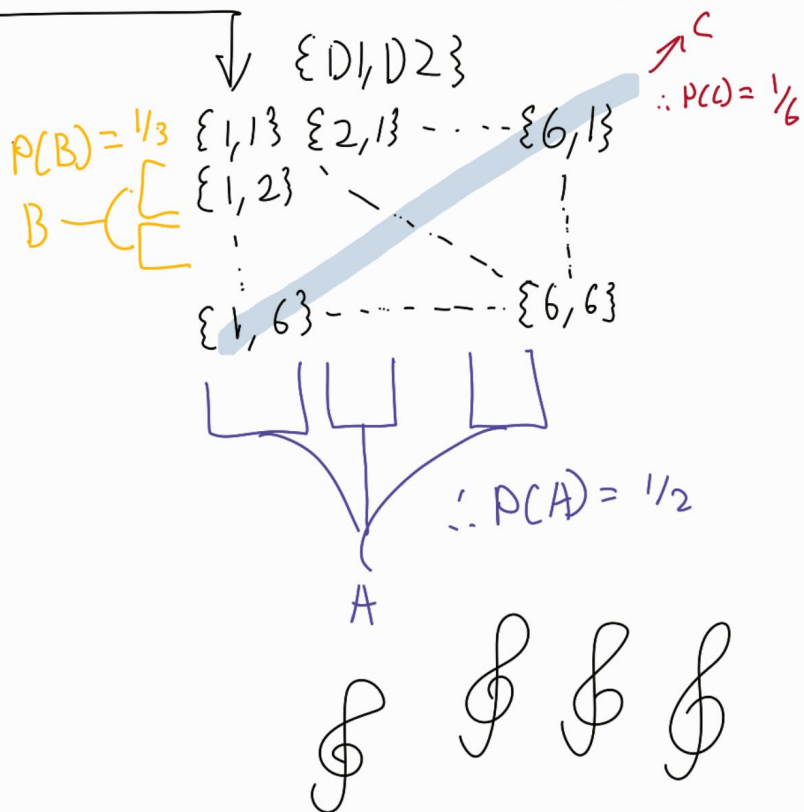 {D1,D2}
C
∴ P(C) = 1/6
P(B) = 1/3
{1,1} {2,1} - . . . - {6,1}
B
{1,2}
{1,6} - - . . - - - - {6,6}
∴ P(A) = 1/2
A